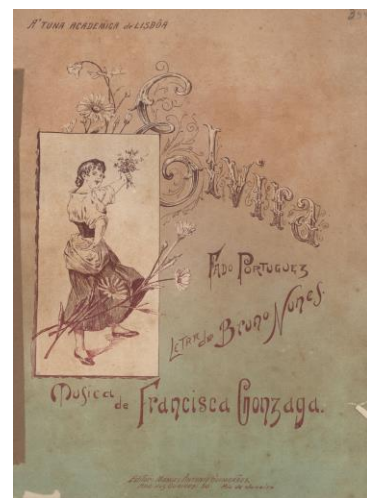 A' TUNA ACADEMICA de LISBÔA
Elvira
FADO PORTUGUEZ
LETRA de BRUNO NUNES.
Musica de Francisca Gonzaga.
Rio de Janeiro